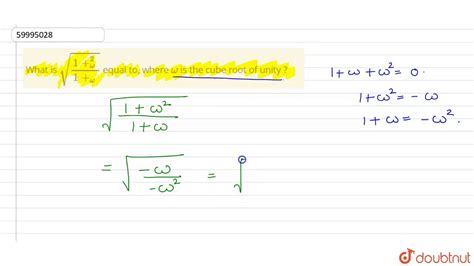 59995028
What is √((1+ω²)/(1+ω)) equal to, where ω is the cube root of unity ?
1+ω+ω² = 0.
1+ω² = -ω
1+ω = -ω².
√((1+ω²)/(1+ω))
= √(-ω/-ω²) = √
doubtnut